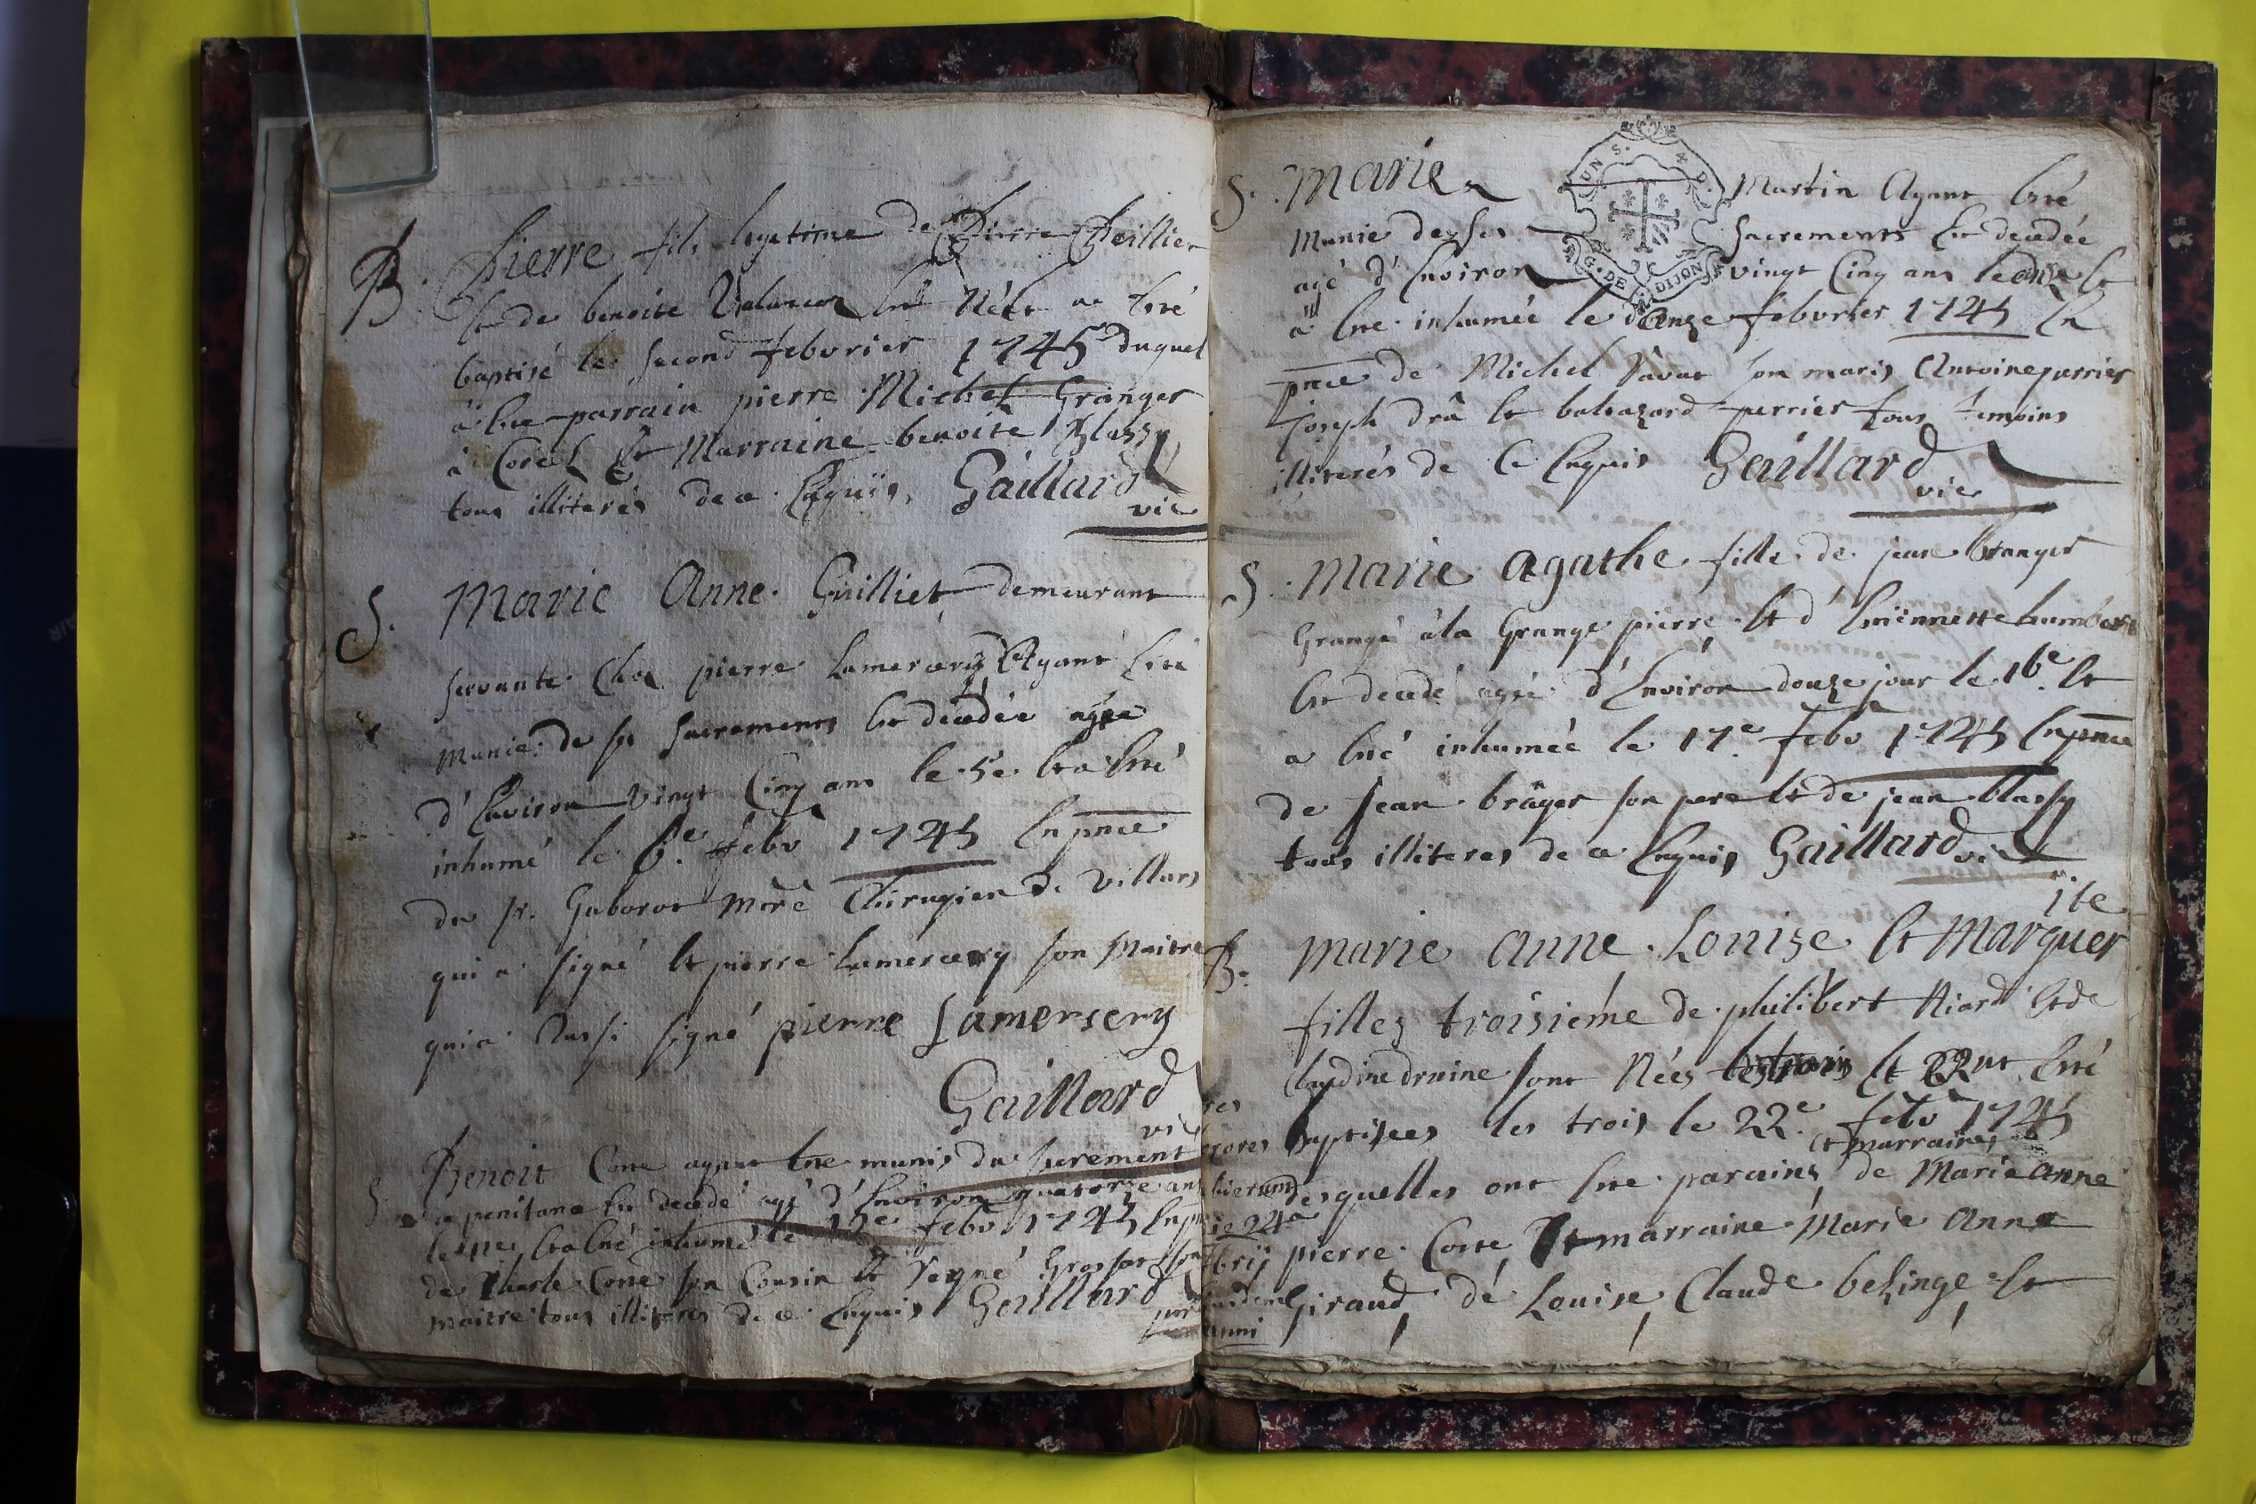 B. Pierre fils legitime de Pierre Peillier
et de benoite est Né et a esté
baptisé le second febvrier 1745 duquel
a Ete parrain pierre Michel Granger
à Corel Et Marraine benoite Blassy
tous illiterés de ce Enquis, Gaillard
vic
S. Marie Anne Guilliet demeurant
servante Chez pierre Lamercery Ayant Eté
munie de ses sacrements Est decedée agée
d'Environ vingt Cinq ans le 5e Et a Eté
inhumé le 6e febv 1745 En pnce
du sr. Guborot mtre Chirugien de Villars
qui a signé Et pierre Lamercery son Maitre
qui a Aussi signé pierre Lamersery
Gaillard
vic
S Benoit Cone ayant Ete munis du sacrement
de penitance Est decedé agé d'Environ quatorze ans
le 11e Et a Eté inhumé le 12e febv 1745 En pnce
de Charle Cone son Cousin Et son
maitre tous illiteres de ce Enquis Gaillard
S. Marie Martin Ayant Eté
Munie de ses sacrements Est decedée
agé d'Environ vingt Cinq ans le onze Et
a Ete inhumée le douze febvrier 1745 En
pnce de Michel Savat son maris Antoine perrier
Joseph drû Et baltazard perrier tous temoins
illiterés de Ce Enquis Gaillard
vic
S. Marie agathe fille de jean branger
Grangé à la Grange pierre Et d'Etiennette humbert
Est decedé agée d'Environ douze jour le 16e Et
a Eté inhumée le 17e febv 1745 En pnce
de Jean brâger son pere Et de jean blassy
tous illiteres de ce Enquis Gaillard vic
ite
B. Marie Anne Louise Et Marguer
filles troisiéme de philibert Riard Et de
Claudine druine sont Nées Et ont Eté
baptisees les trois le 22e febv 1745
et marraines
desquelles ont Ete parains de Marie anne
pierre Cone Et marraine Marie Anne
Giraud, de Louise Claude belinge Et